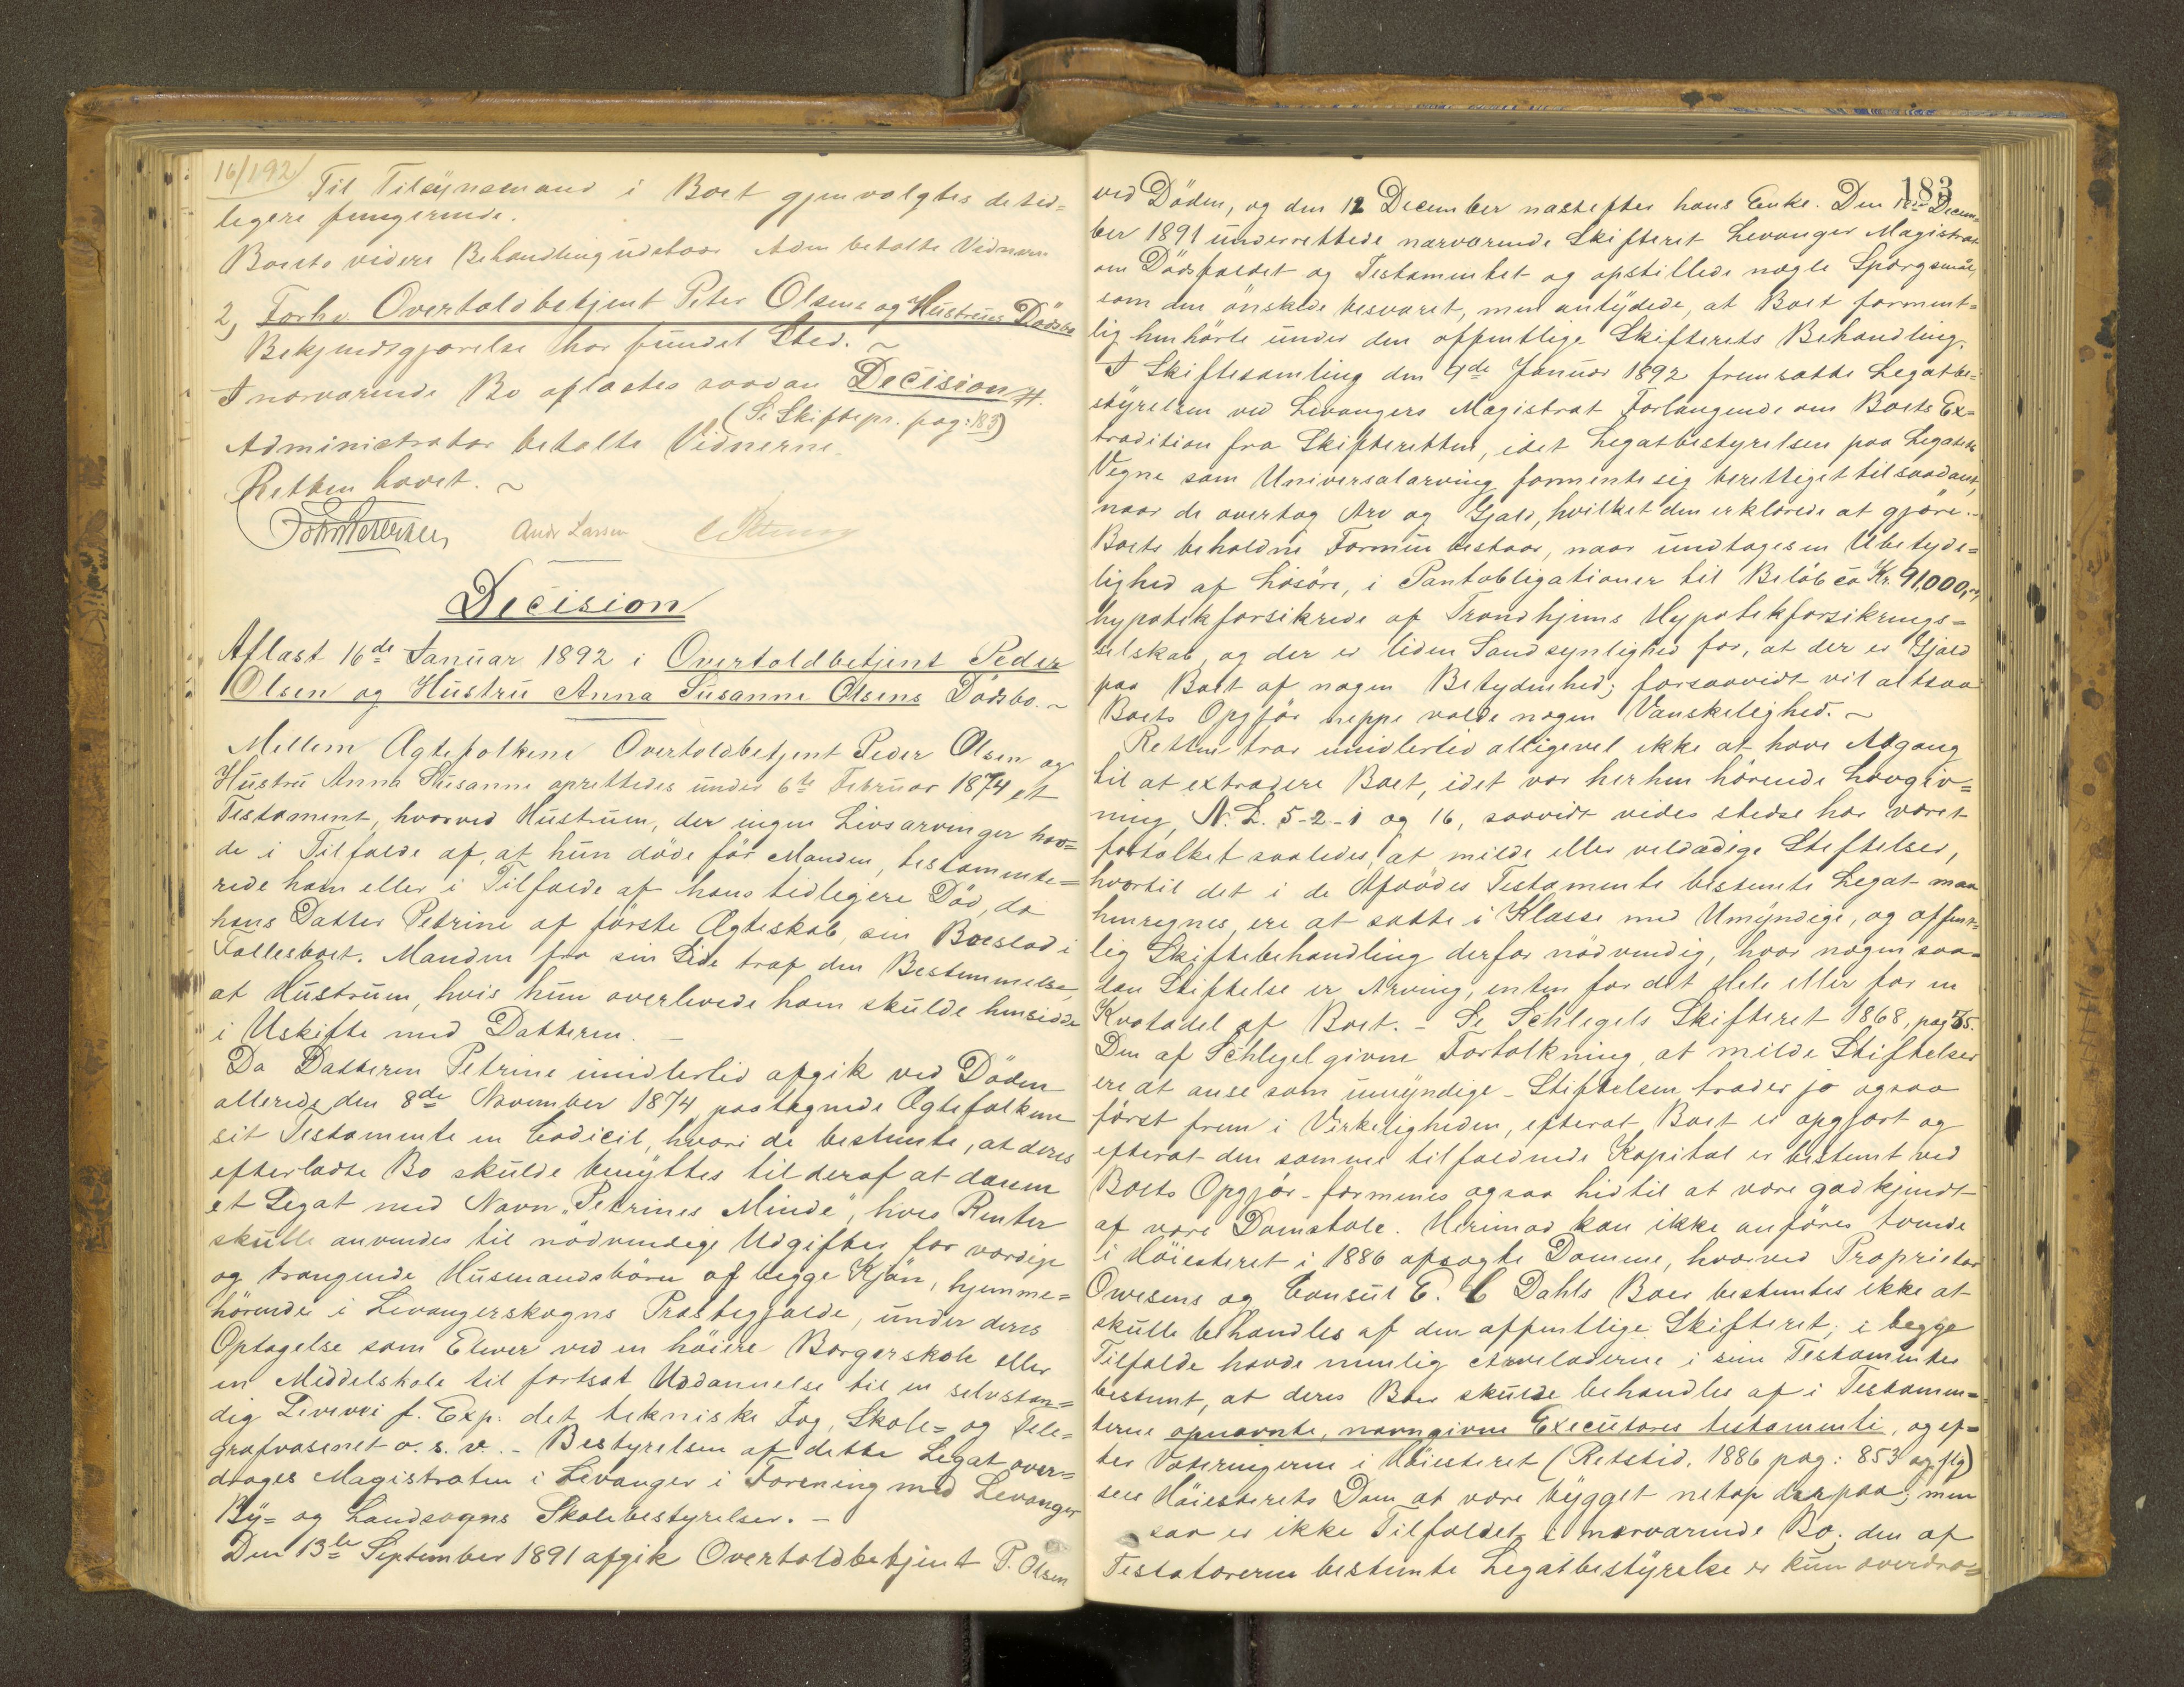 16/1 92
Til Tilsynsmand i Boet gjenvalgtes de tid=
ligere fungerende.
Boets videre Behandling udstaar Adm betalte Vidnerne
2, Forhv Overtoldbetjent Peter Olsens og Hustrues Dødsbo
Bekjendtgjørelse har fundet Sted. ~
I nærværende Bo aflæstes saadan Decision #.
(Se Skiftepr. pag: 183)
Administrator betalte Vidnerne.
Retten hævet. ~
Andr Larsen
Decision
Aflæst 16de Januar 1892 i Overtoldbetjent Peder
Olsen og Hustru Anna Susanne Olsens Dødsbo. ~
Mellem Ægtefolkene Overtoldbetjent Peder Olsen og
Hustru Anna Susanne oprettedes under 6te Februar 1874 et
Testament, hvorved Hustruen, der ingen Livsarvinger hav=
de i Tilfælde af, at hun døde før Manden, testamente=
rede ham eller i Tilfælde af hans tidligere Død, da
hans Datter Petrine af første Ægteskab, sin Boeslod i
Fællesboet. Manden fra sin Side traf den Bestemmelse,
at Hustruen, hvis hun overlevede ham skulde hensidde
i Uskifte med Datteren. –
Da Datteren Petrine imidlertid afgik ved Døden
allerede den 8de November 1874 paategnede Ægtefolkene
sit Testamente en Codicil, hvori de bestemte, at deres
efterladte Bo skulde benyttes til deraf at danne
et Legat med Navn „Petrines Minde", hvis Renter
skulle anvendes til nødvendige Udgifter for værdige
og trængende Husmandsbörn af begge Kjøn, hjemme=
hörende i Levangerskogns Præstegjælde, under deres
Optagelse som Elever ved en høiere Borgerskole eller
en Middelskole til fortsat Uddannelse til en selvstæn=
dig Levevei f. Exp: det tekniske Fag, Skole= og Tele=
grafvæsenet o. s. v. - Bestyrelsen af dette Legat over=
drages Magistraten i Levanger i Forening med Levanger
By= og Landsogns Skolebestyrelser. -
Den 13de September 1891 afgik Overtoldbetjent P. Olsen
183
ved Døden, og den 12 December næstefter hans Enke. Den Decem=
ber 1891 underrettede nærværende Skifteret Levanger Magistrat
om Dødsfaldet og Testamentet og opstillede nogle Spørgsmål,
som den ønskede besvaret, men antydede, at Boet forment=
lig henhörte under den offentlige Skifterets Behandling.
I Skiftesamling den 9de Januar 1892 fremsatte Legatbe=
styrelsen ved Levangers Magistrat Forlangende om Boets Ex=
tradition fra Skifteretten, idet Legatbestyrelsen paa Legatets
Vegne som Universalarving formente sig berettiget til saadant,
naar de overtog Arv og Gjæld, hvilket den erklærede at gjøre. -
Boets beholdne Formue bestaar, naar undtages en Ubetyde=
lighed af Løsøre, i Pantobligationer til Beløb ca Kr. 91,000,
hypotekforsikrede af Trondhjems Hypotekforsikrings=
selskab, og der er liden Sandsynlighed for, at der er Gjæld
paa Boet af nogen Betydenhed; forsaavidt vil altsaa
Boets Opgjør neppe volde nogen Vanskelighed. ~
Retten tror imidlertid alligevel ikke at have Adgang
til at extradere Boet, idet vor herhen hörende Lovgiv=
ning N. L. 5-2-1 og 16, saavidt vides stedse har været
fortolket saaledes, at milde eller veldædige Stiftelser,
hvortil det i de Afdödes Testamente bestemte Legat maa
henregnes, ere at sætte i Klasse med Umyndige, og offent=
lig Skiftebehandling derfor nödvendig, hvor nogen saa=
dan Stiftelse er Arving, enten for det Hele eller for en
Kvotadel af Boet. - Se Schlegels Skifteret 1868, pag
Den af Schlegel givne Fortolkning, at milde Stiftelser
ere at anse som umyndige - Stiftelsen træder jo ogsaa
först frem i Virkeligheden, efterat Boet er opgjort og
efterat den samme tilfaldende Kapital er bestemt ved
Boets Opgjör - formenes ogsaa hidtil at være godkjendt
af vore Domstole. Herimod kan ikke anföres tvende
i Høiesteret i 1886 afsagte Domme, hvorved Proprietær
Owesens og Consul E. C Dahls Boer bestemtes ikke at
skulle behandles af den offentlige Skifteret; i begge
Tilfælde havde nemlig Arveladerne i sine Testamenter
bestemt, at deres Boer skulde behandles af i Testamen=
terne opnævnte, navngivne Executores testamenti, og ef=
ter Voteringerne i Høiesteret (Retstid. 1886 pag: 853 og flg)
sees Høiesterets Dom at være bygget netop derpaa; men
saa er ikke Tilfældet i nærværende Bo; den af
Testatorerne bestemte Legatbestyrelse er kun overdra=